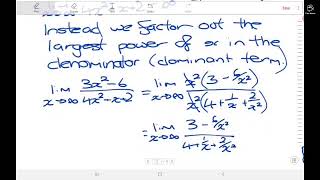 Instead we factor out the
largest power of x in the
denominator (dominant term.)
lim x→∞ 3x²-6 / 4x²-x+2 = lim x→∞ x²(3 - 6/x²) / x²(4 + 1/x + 2/x²)
= lim x→∞ 3 - 6/x² / 4 + 1/x + 2/x²